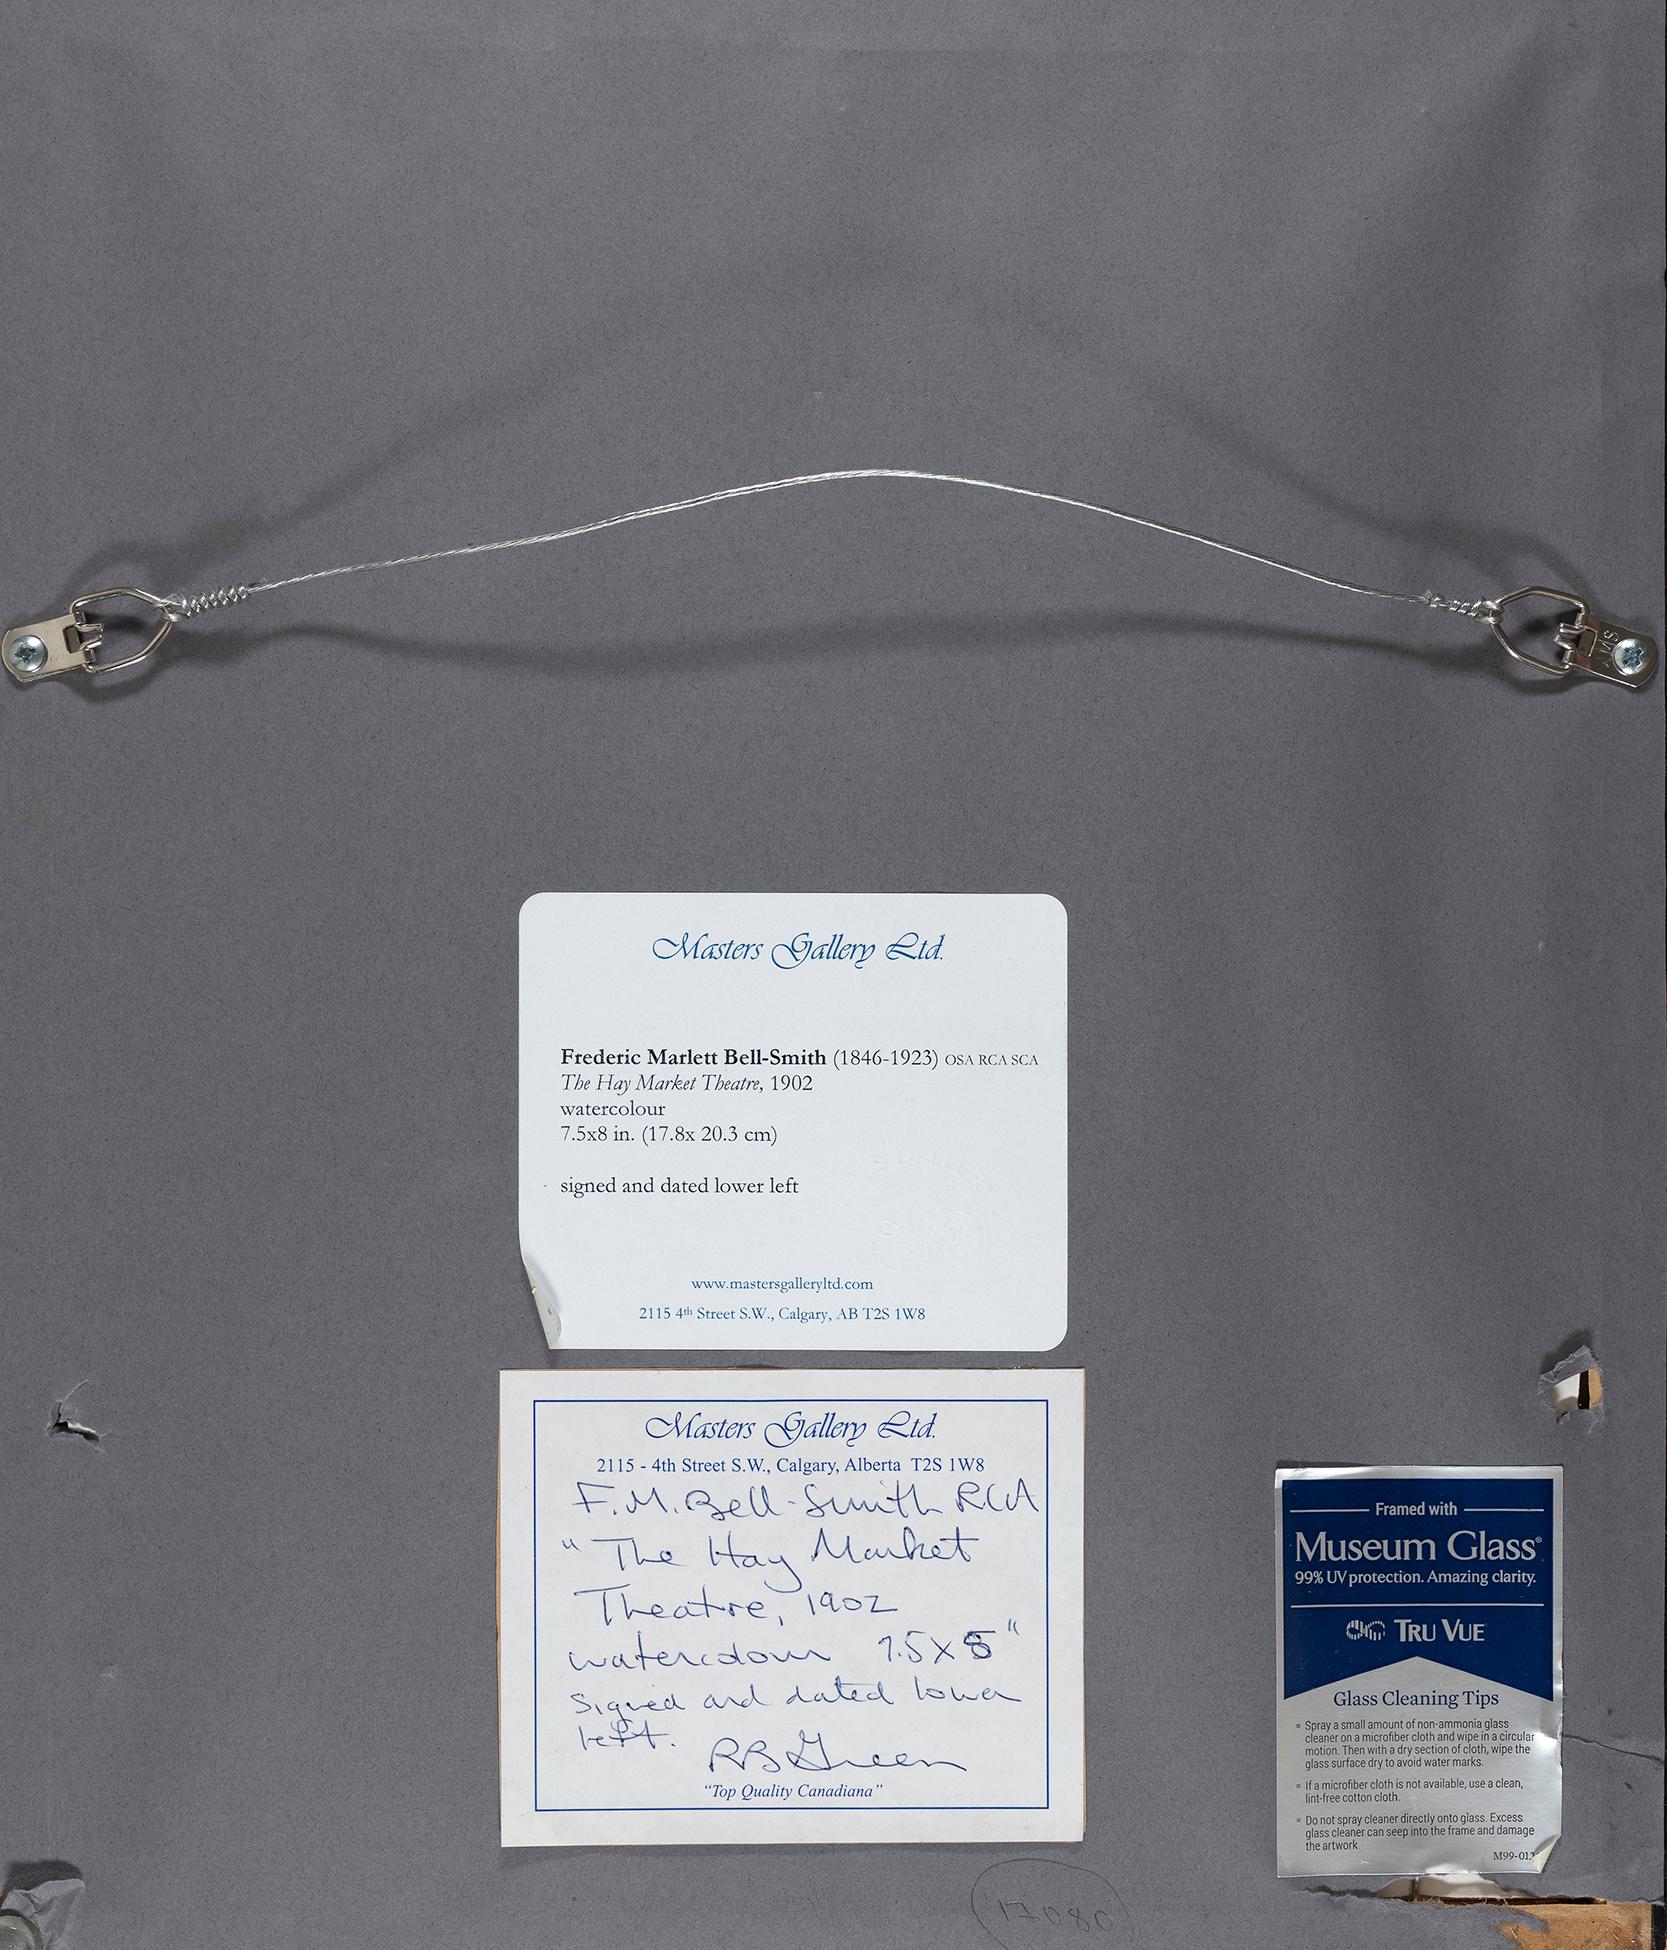 MS
Masters Gallery Ltd.
Frederic Marlett Bell-Smith (1846-1923) OSA RCA SCA
The Hay Market Theatre, 1902
watercolour
7.5x8 in. (17.8x 20.3 cm)
signed and dated lower left
www.mastersgalleryltd.com
2115 4th Street S.W., Calgary, AB T2S 1W8
Masters Gallery Ltd.
2115 - 4th Street S.W., Calgary, Alberta T2S 1W8
F.M. Bell-Smith RCA
"The Hay Market
Theatre, 1902
watercolour 7.5 x 8"
signed and dated lower
left.
RB Green
"Top Quality Canadiana"
17080
Framed with
Museum Glass®
99% UV protection. Amazing clarity.
TRU VUE
Glass Cleaning Tips
▪ Spray a small amount of non-ammonia glass
cleaner on a microfiber cloth and wipe in a circular
motion. Then with a dry section of cloth, wipe the
glass surface dry to avoid water marks.
▪ If a microfiber cloth is not available, use a clean,
lint-free cotton cloth.
▪ Do not spray cleaner directly onto glass. Excess
glass cleaner can seep into the frame and damage
the artwork
M99-012